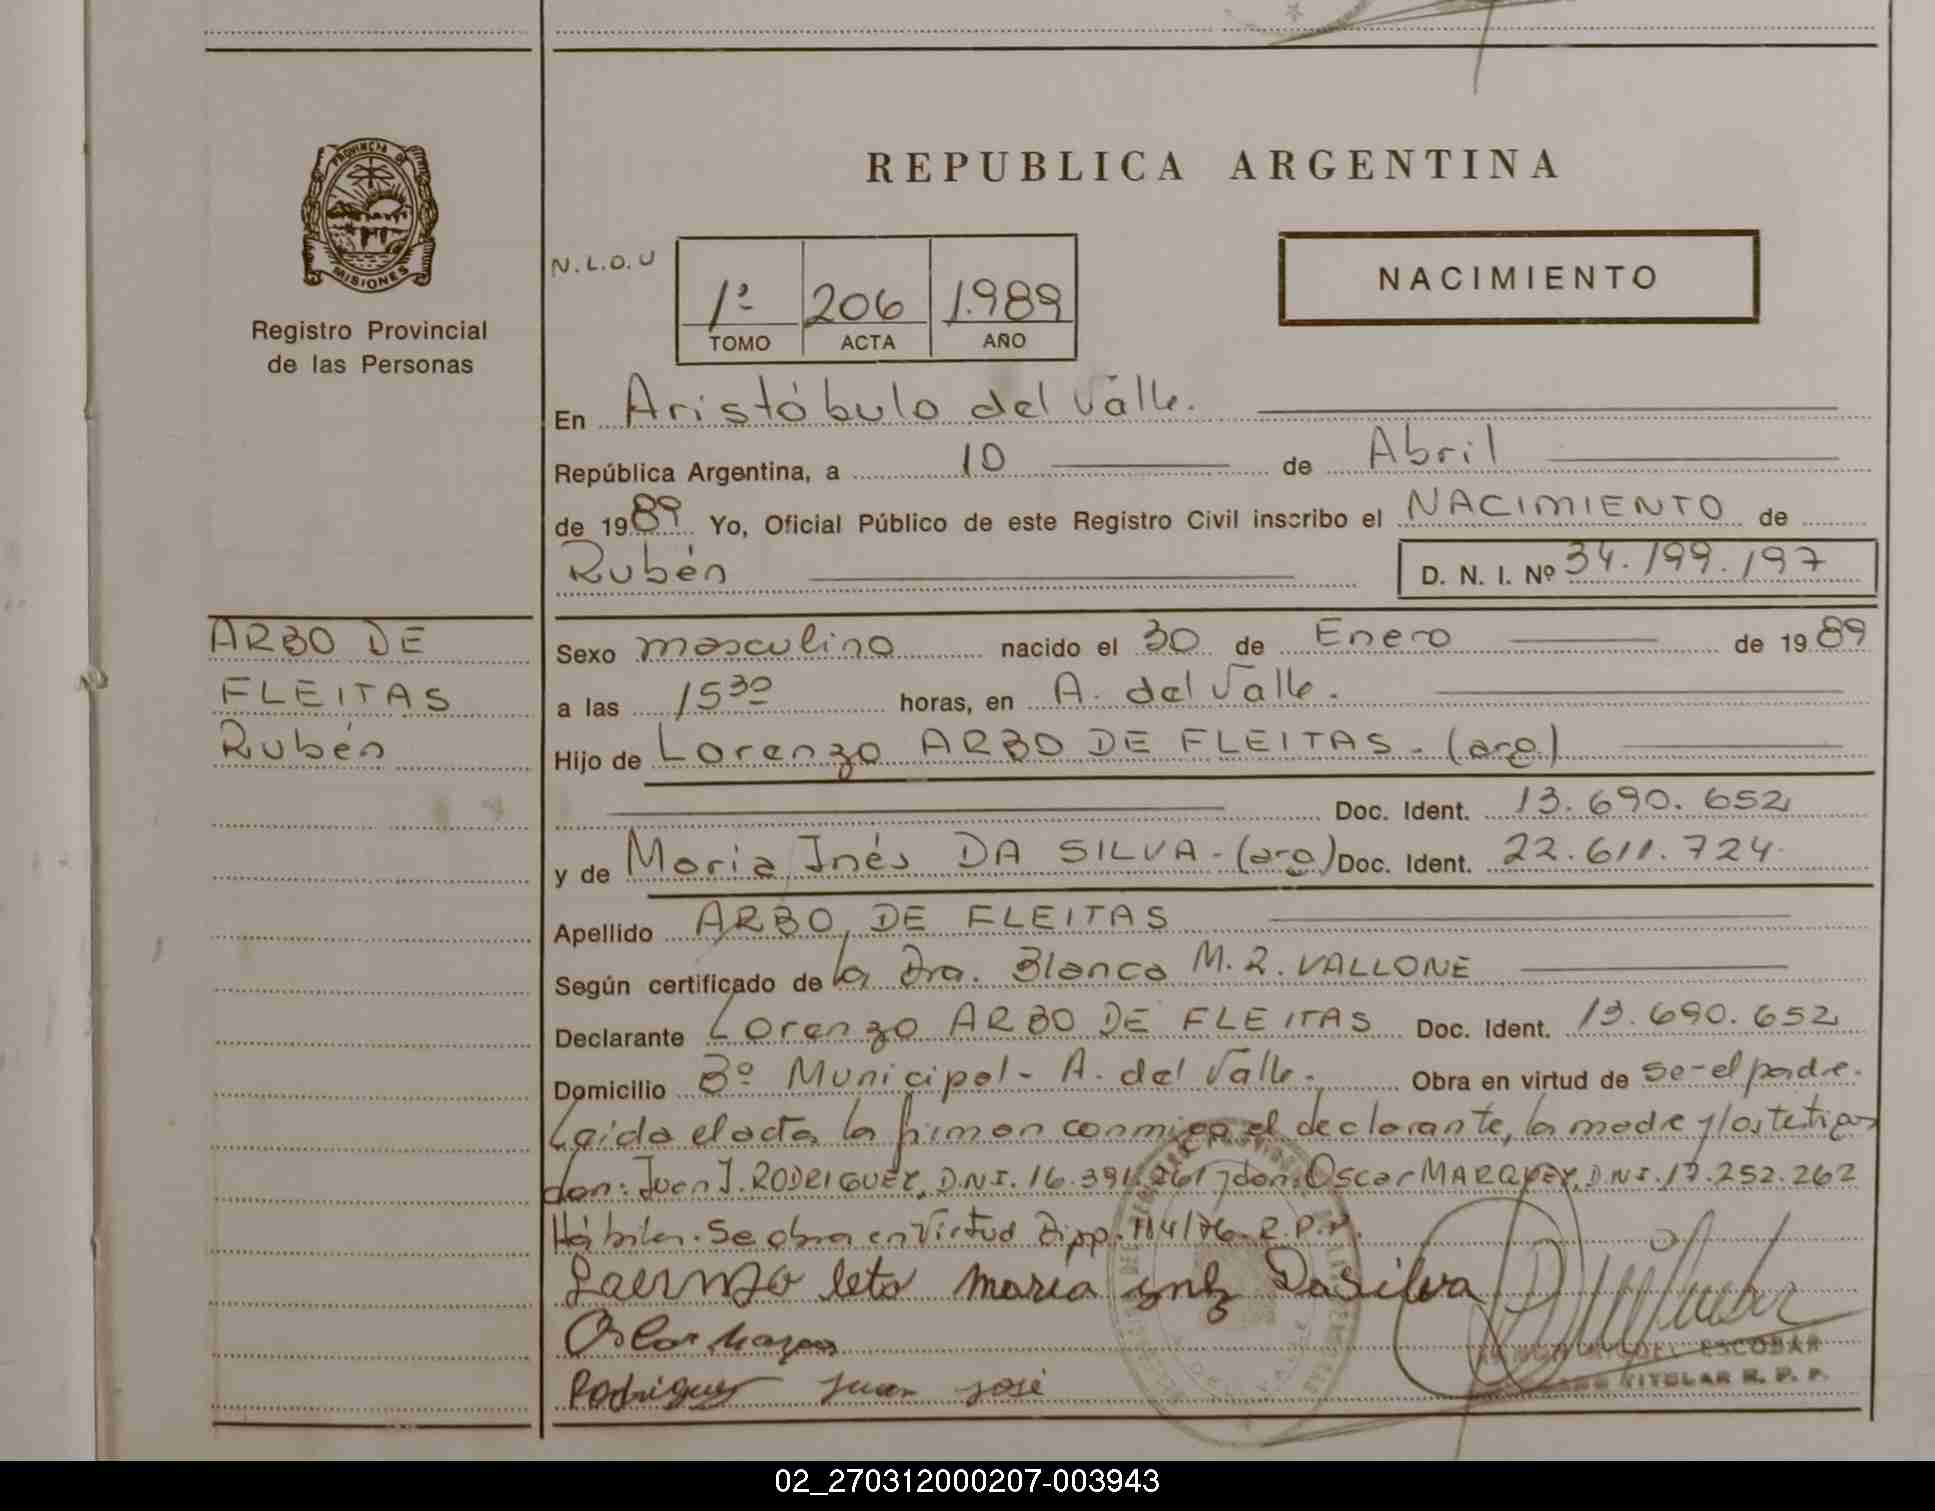 PROVINCIA DE
MISIONES
Registro Provincial
de las Personas
REPUBLICA ARGENTINA
N.L.O.U
1º 206 1.989
TOMO ACTA AÑO
NACIMIENTO
En Aristóbulo del Valle.
República Argentina, a 10 de Abril
de 1989 Yo, Oficial Público de este Registro Civil inscribo el NACIMIENTO de
Rubén D. N. I. Nº 34.199.197
ARBO DE
FLEITAS
Rubén
Sexo masculino nacido el 30 de Enero de 1989
a las 15 30 horas, en A. del Valle.
Hijo de Lorenzo ARBO DE FLEITAS - (arg.)
Doc. Ident. 13.690.652
y de María Inés DA SILVA - (arg) Doc. Ident. 22.611.724
Apellido ARBO DE FLEITAS
Según certificado de la Dra. Blanca M. R. VALLONE
Declarante Lorenzo ARBO DE FLEITAS Doc. Ident. 13.690.652
Domicilio Bº Municipal - A. del Valle. Obra en virtud de se-el padre.
Leída el acta la firman conmigo el declarante, la madre y los testigos
don: Juan J. RODRIGUEZ, D.N.I. 16.391.261 y don: Oscar MARQUEZ, D.N.I. 17.252.262
Hábiles. Se obra en virtud Disp. 114/76 - R.P.P.
leto maria Dasilva
Oscar
Rodriguez Juan José
ESCOBAR
TITULAR R. P. P.
02_270312000207-003943